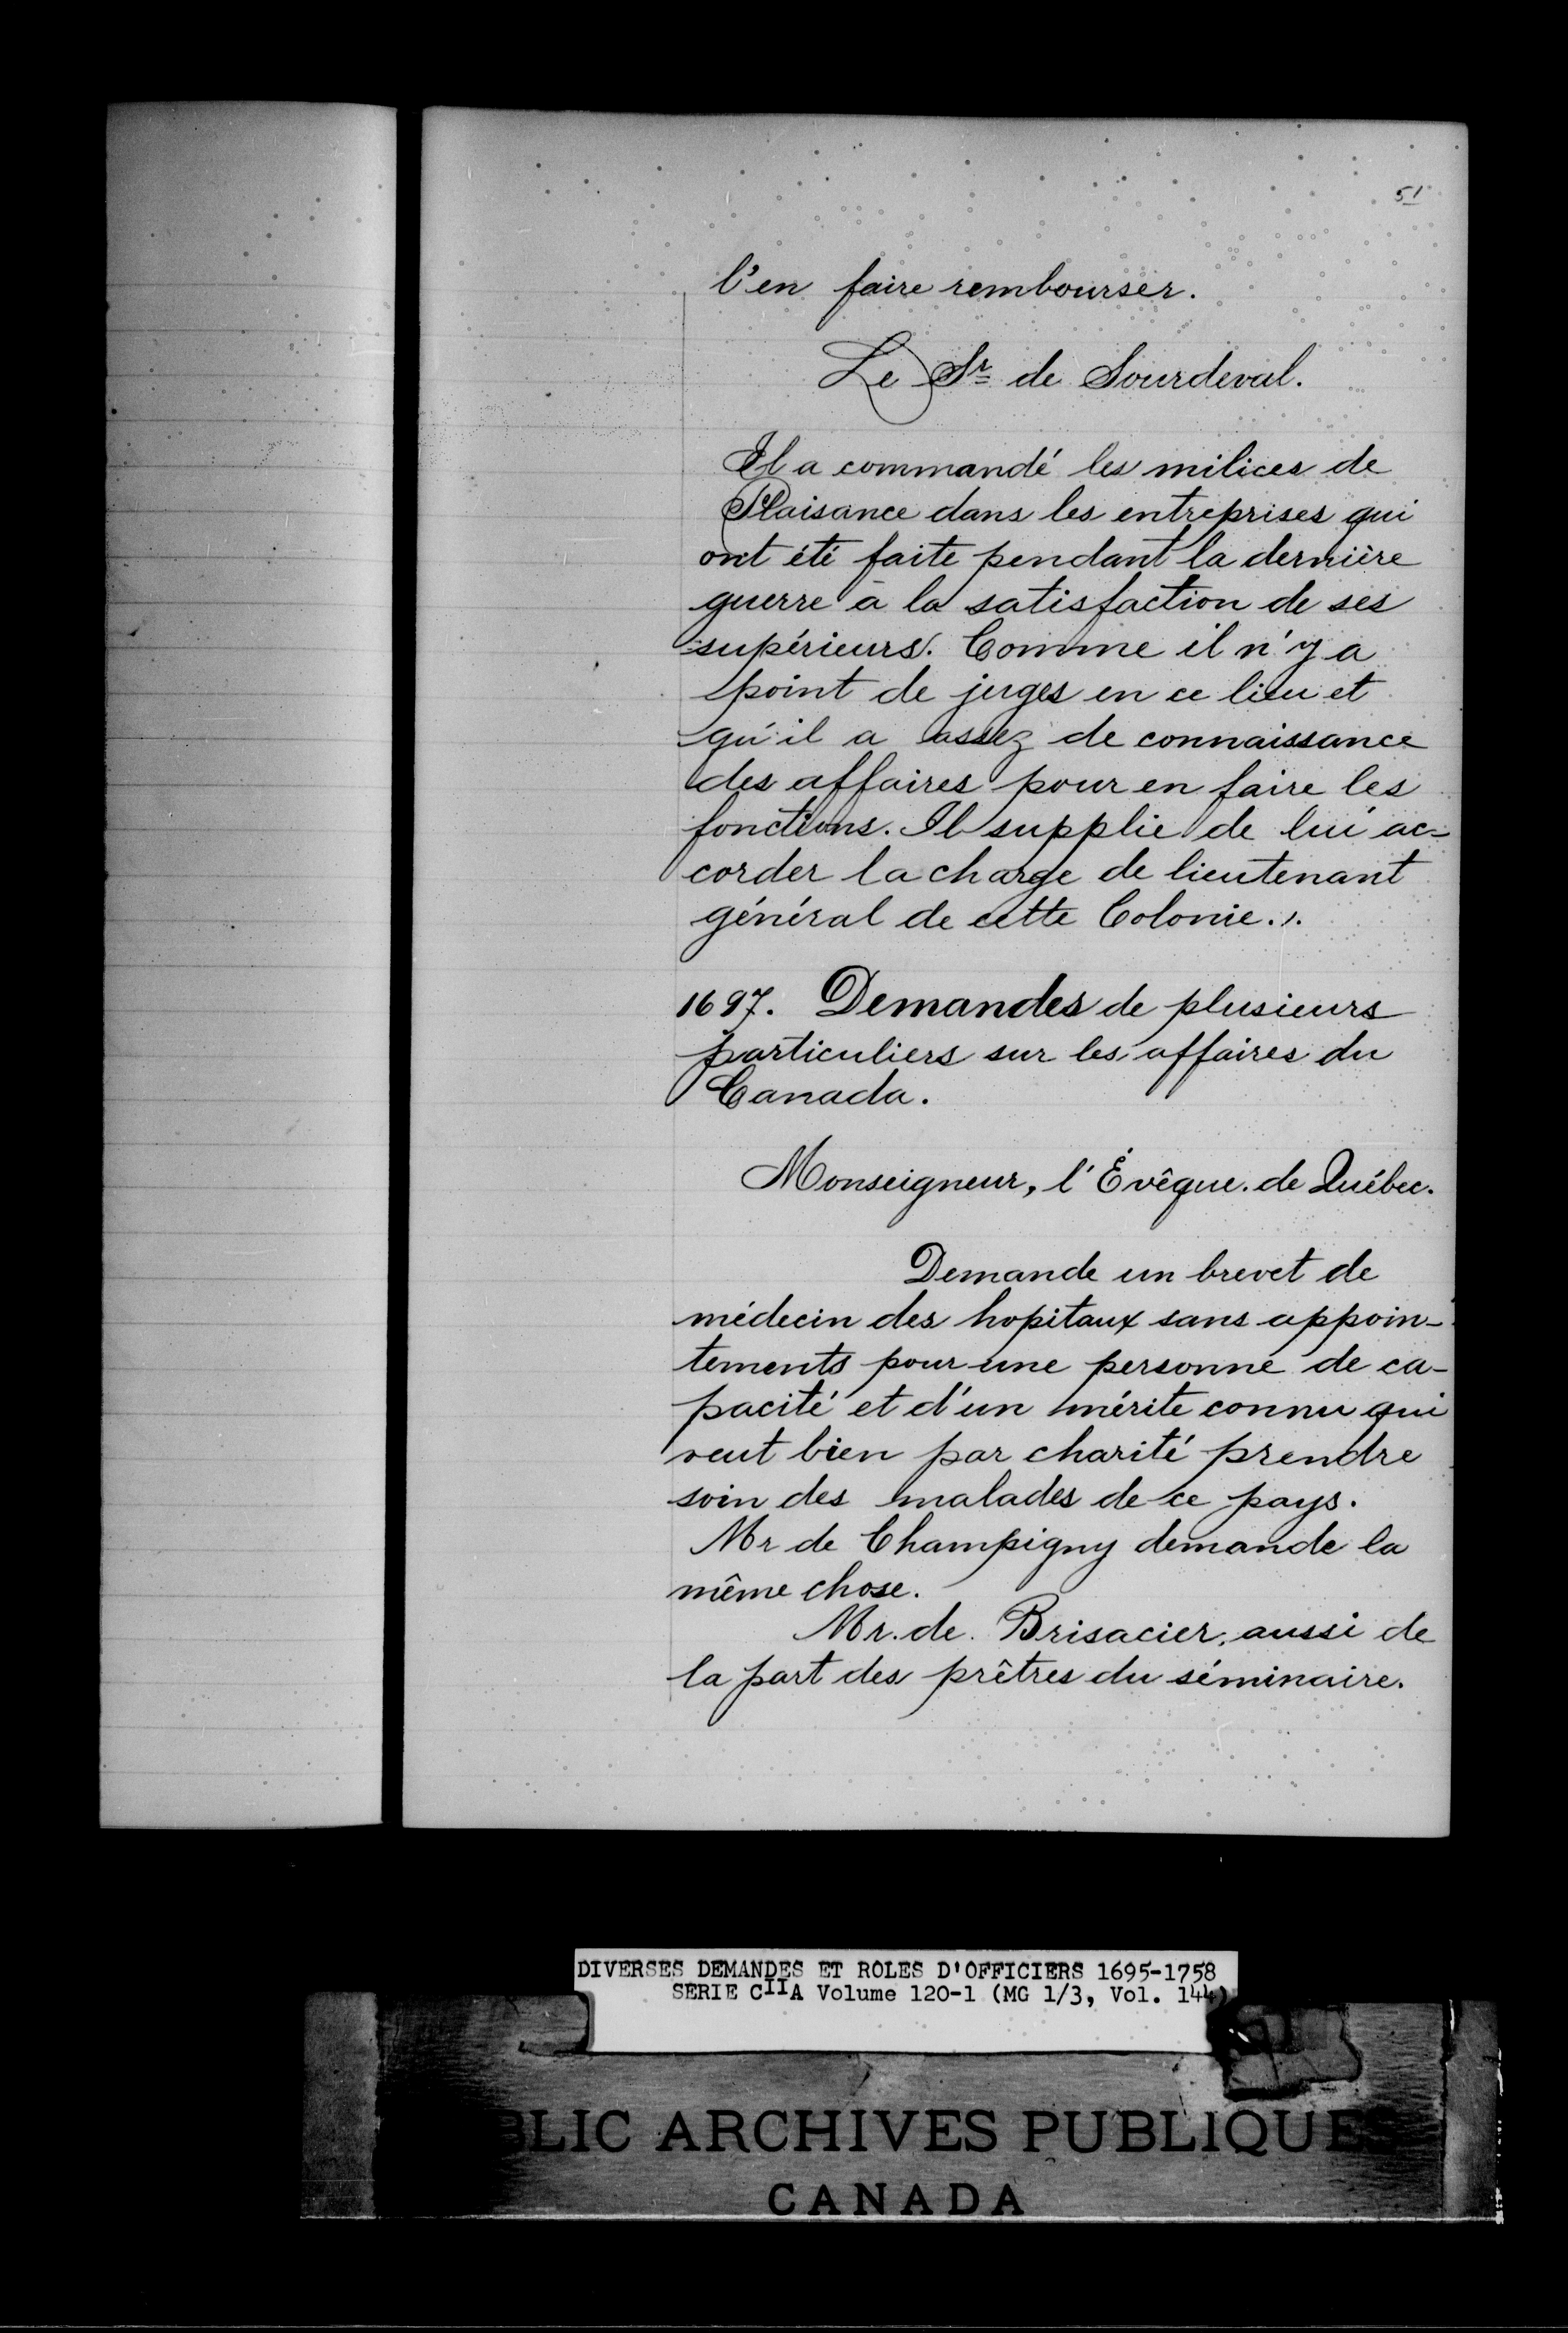 51
l'en faire rembourser.
Le Sr de Sourdeval.
Il a commandé les milices de
Plaisance dans les entreprises qui
ont été faite pendant la dernière
guerre à la satisfaction de ses
supérieurs. Comme il n'y a
point de juges en ce lieu et
qu'il a assez de connaissance
des affaires pour en faire les
fonctions. Il supplie de lui ac-
corder la charge de lieutenant
général de cette Colonie.
1697. Demandes de plusieurs
particuliers sur les affaires du
Canada.
Monseigneur, l'Évêque de Québec.
Demande un brevet de
médecin des hopitaux sans appoin-
tements pour une personne de ca-
pacité et d'un mérite connu qui
veut bien par charité prendre
soin des malades de ce pays.
Mr de Champigny demande la
même chose.
Mr. de Brisacier, aussi de
la part des prêtres du séminaire.
DIVERSES DEMANDES ET ROLES D'OFFICIERS 1695-1758
SERIE CIIA Volume 120-1 (MG 1/3, Vol. 144)
BLIC ARCHIVES PUBLIQUES
CANADA